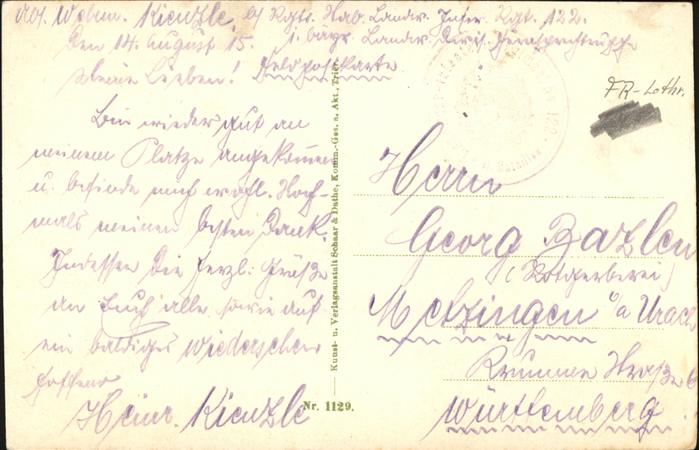 Wehrm. Kienzle, Rgts. Stab. Landw. Infer. Rgt. 122.
Den 14. August 15. 1. bayr. Landw. Divis. Fernsprechtruppe
Meine Lieben! Feldpostkarte
Bin wieder gut an
meinem Platze angekommen
u. befinde mich wohl. Noch-
mals meinen besten Dank.
Indessen die herzl. Grüße
an Euch alle, sowie auf
ein baldiges Wiedersehen
hoffend
Heinr. Kienzle
Kunst- u. Verlagsanstalt Schaar & Dathe, Komm.-Ges. a. Akt., Trier
Nr. 1129.
FR-Lothr.
Herrn
Georg Bazlen
(Rotgerberei)
Metzingen O/a Urach
Krumme Straße 6
Württemberg